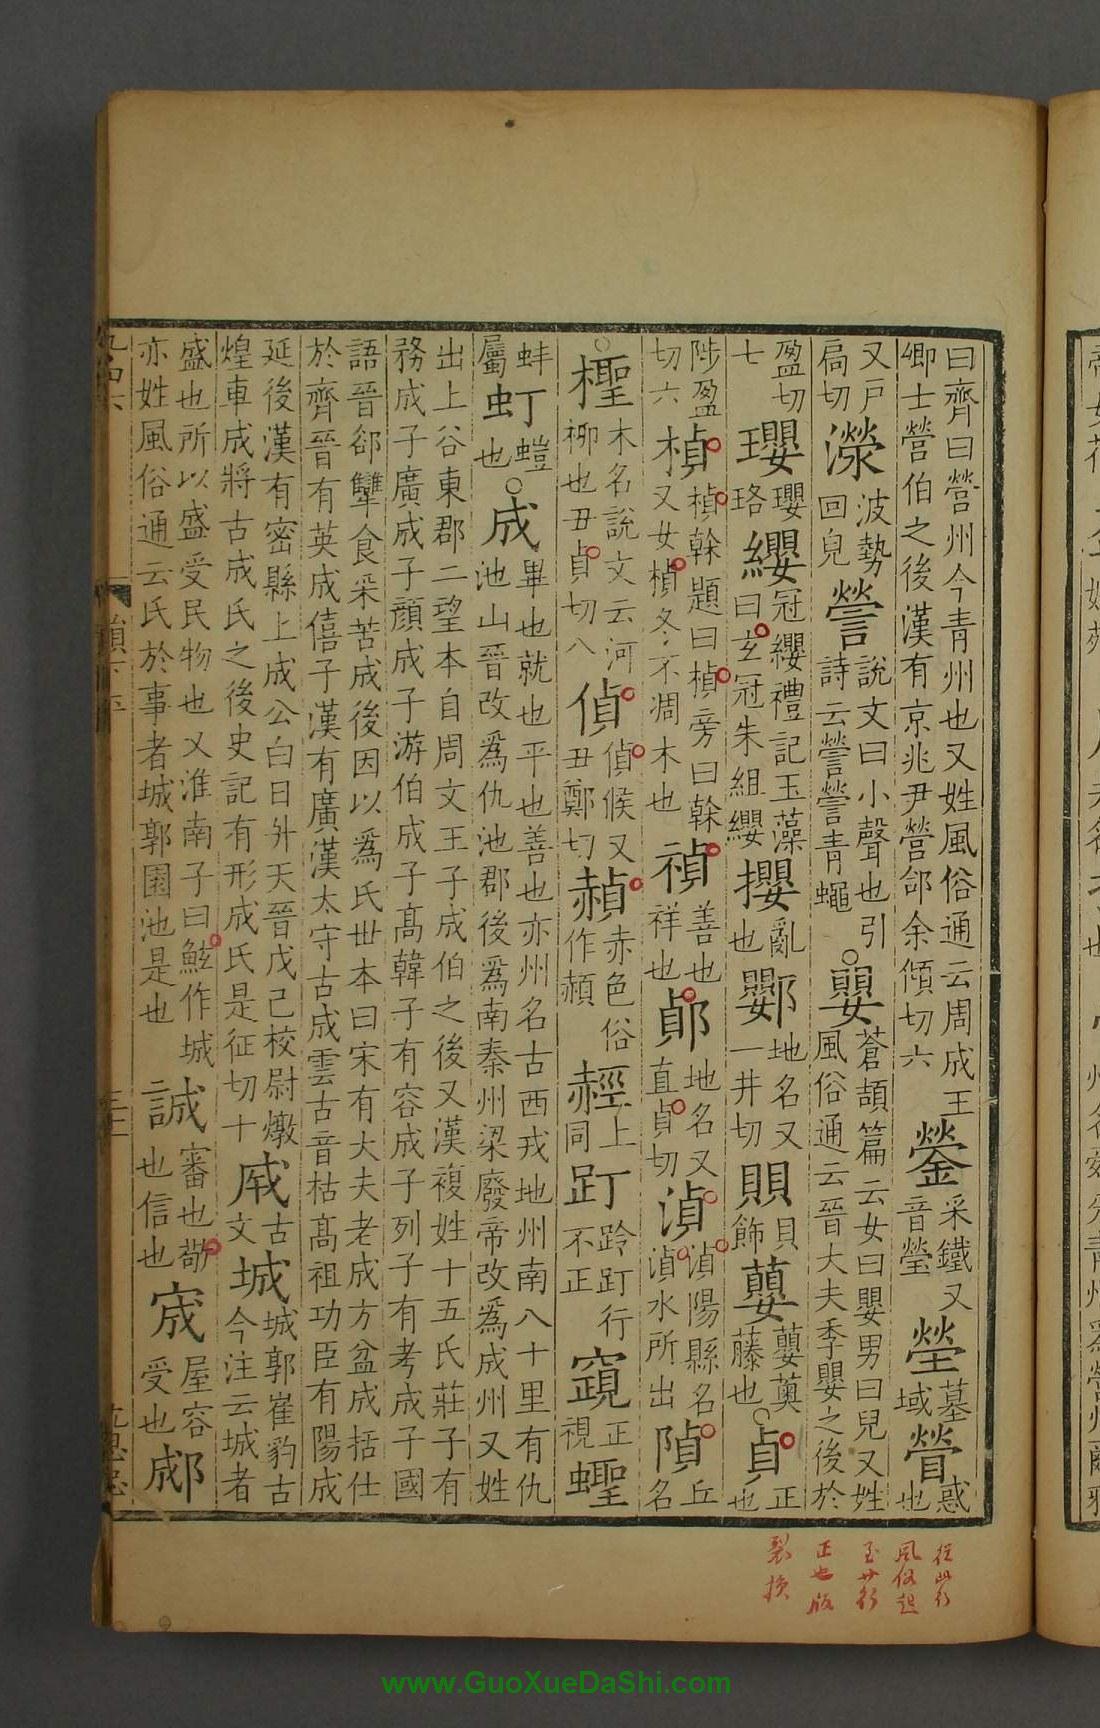 曰齊曰營州今青州也又姓風俗通云周成王卿士營伯之後漢有京兆尹營郃余傾切六鎣采鐵又音瑩塋墓域䁝惑也
又戶扃切濴波勢回皃謍說文曰小聲也引詩云謍謍青蠅○嬰蒼頡篇云女曰嬰男曰兒又姓風俗通云晉大夫季嬰之後於
盈切七瓔瓔珞纓冠纓禮記玉藻曰玄冠朱組纓攖亂也地名又一井切賏貝飾蘡蘡薁藤也○貞正也
陟盈切六楨楨幹題曰楨旁曰幹又女楨冬不凋木也禎善也祥也地名又直貞切湞湞陽縣名湞水所出丘名
○檉木名說文云河柳也丑貞切八偵偵候又丑鄭切赬赤色俗作頳䞓上同䟓跉䟓行不正竀正視蟶
蚌屬虰螘也○成畢也就也平也善也亦州名古西戎地州南八十里有仇池山晉改爲仇池郡後爲南秦州梁廢帝改爲成州又姓
出上谷東郡二望本自周文王子成伯之後又漢複姓十五氏莊子有務成子廣成子顏成子游伯成子高韓子有容成子列子有考成子國
語晉郤犫食采苦成後因以爲氏世本曰宋有大夫老成方盆成括仕於齊晉有英成僖子漢有廣漢太守古成雲古音枯高祖功臣有陽成
延後漢有密縣上成公白日升天晉戊己校尉燉煌車成將古成氏之後史記有形成氏是征切十𢦩古文城城郭崔豹古今注云城者
盛也所以盛受民物也又淮南子曰鮌作城亦姓風俗通云氏於事者城郭園池是也誠審也敬也信也宬屋容受也郕
www.GuoXueDaShi.com